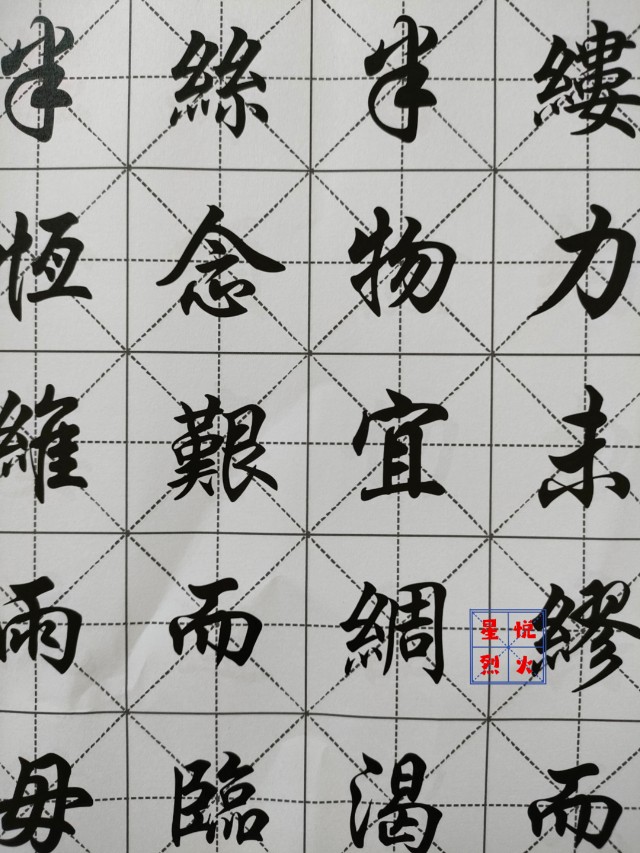 半絲半縷
恆念物力
維艱宜未
雨而綢繆
毋臨渴而
星悦
烈火